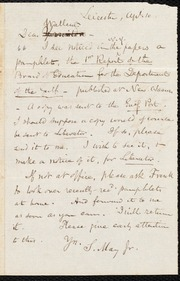 Leicester, Aug. 10.
Dear Wallcut
I see noticed in the papers a
pamphlet, the 1st Report to the
Board of Education for the Department
of the Gulf - published at New Orleans.
A copy was sent to the Eveg Post.
I should suppose a copy would of course
be sent to Liberator. If so, please
send it to me. I wish to see it, &
make a notice of it, for Liberator.
If not at office, please ask Frank
to look over recently-recd pamphlets
at home. And forward it to me
as soon as you can. I will return
it. Please give early attention
to this. Yrs.
S. May Jr.